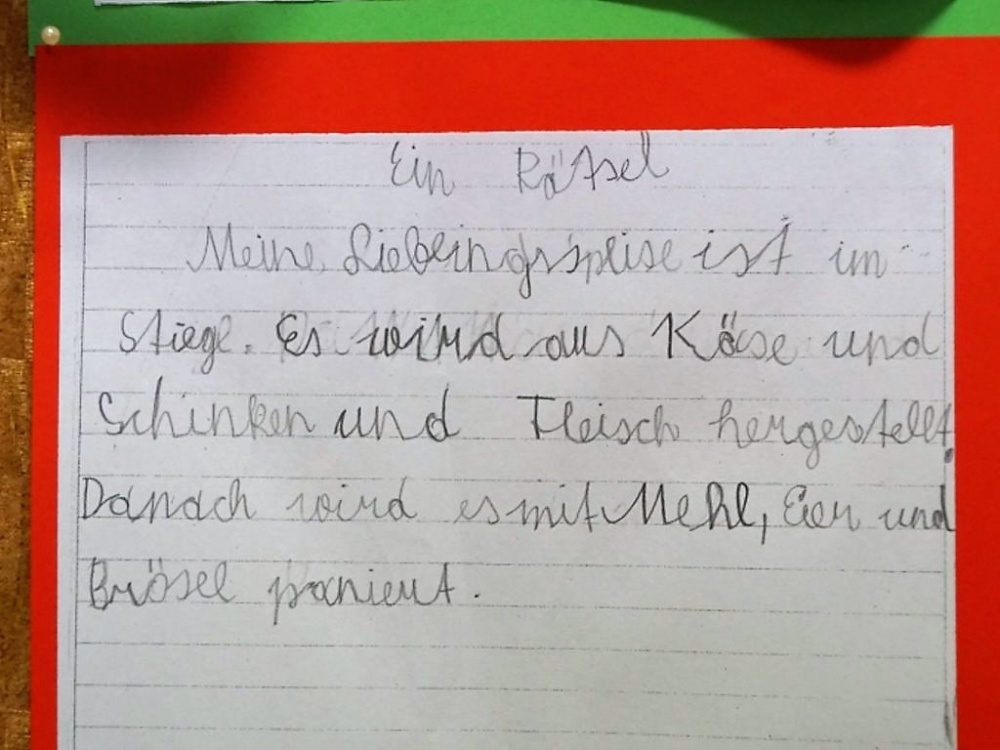 Ein Rätsel
Meine Lieblingsspeise ist im
Stiege. Es wird aus Käse und
Schinken und Fleisch hergestellt.
Danach wird es mit Mehl, Eier und
Brösel paniert.